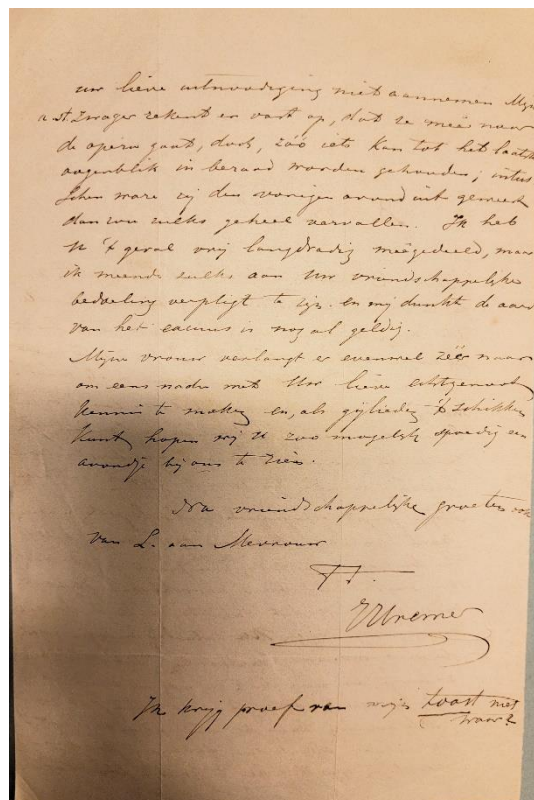 uw lieve uitnoodiging niet aannemen Mijn
zwager rekent er vast op, dat ze meê naar
de opera gaat, doch, zóó iets kan tot het laatste
oogenblik in beraad worden gehouden; intus
schen ware zij den vorigen avond uit geweest
dan zou zulks geheel vervallen. Ik heb
U 't geval vrij langdradig meêgedeeld, maar
ik meende zulks aan Uw vriendschappelijke
bedoeling verpligt te zijn. en mij dunkt de aard
van het excuus is nog al geldig.
Mijne vrouw verlangt er evenwel zéér naar
om eens nader met Uw lieve echtgenoot
kennis te maken en, als gijlieden 't schikken
kunt hopen wij U zoo mogelijk spoedig een
avondje bij ons te zien.
Na vriendschappelijke groeten ook
van L. aan Mevrouw
TT.
Cremer
Ik krijg proef van mijn toast niet
waar?